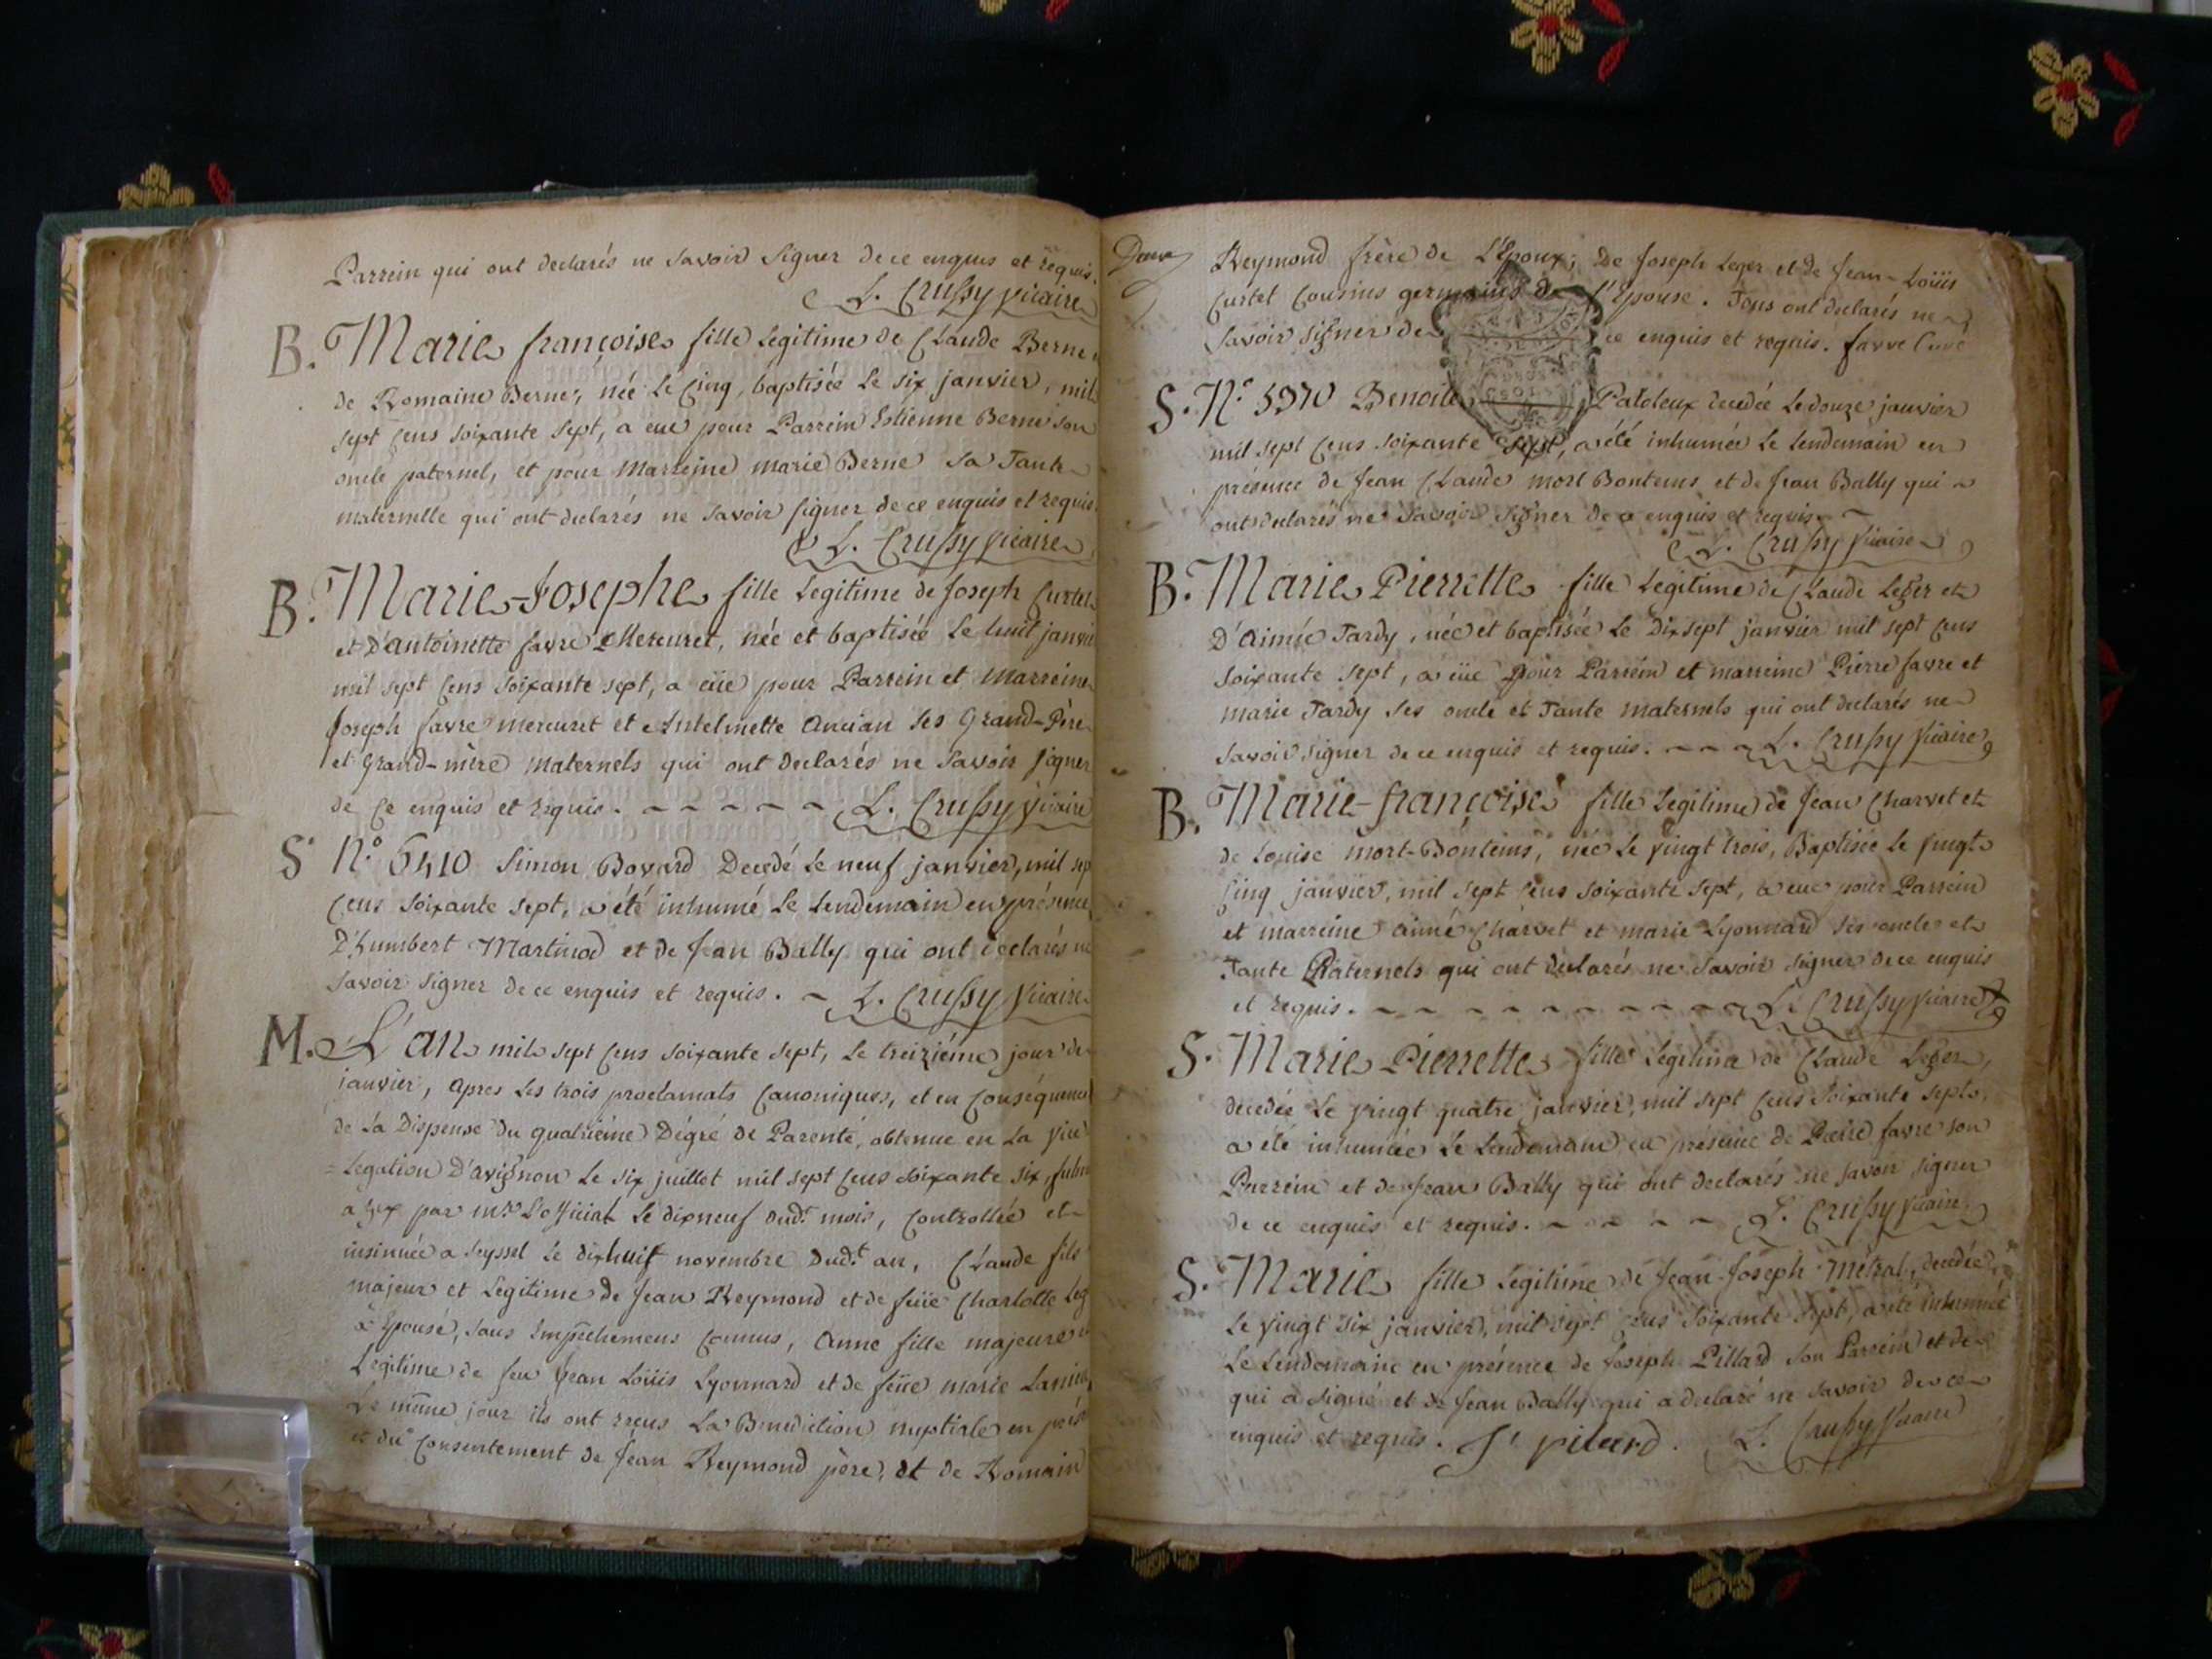 Parrein qui ont declarés ne savoir signer de ce enquis et requis.
L. Crussy vicaire
B. Marie françoise fille Legitime de Claude Berne
de Romaine Berne, née Le Cinq, baptisée Le six janvier, mil
sept Cens soixante sept, a eüe pour Parrein Estienne Berne son
oncle paternel, et pour Marreine marie Berne sa Tante
maternelle qui ont declarés ne savoir signer de ce enquis et requis.
L. Crussy vicaire
B. Marie-Josephe fille Legitime de Joseph Curtet
et D'Antoinette favre Mercuret, née et baptisée Le huit janvi
mil sept Cens soixante sept, a eüe pour Parrein et Marreine
Joseph favre mercuret et Antelmette Ancian ses Grand-Père
et Grand-mère maternels qui ont declarés ne savoir signer
de Ce enquis et requis. L. Crussy vicaire
S. N.º 5410 Simon Bovard Decedé Le neuf janvier, mil sep
Cens soixante sept, a été inhumé Le Lendemain en présence
D'humbert Martinod et de Jean Bally qui ont declarés ne
savoir signer de ce enquis et requis. L. Crussy vicaire
M. L'an mil sept Cens soixante sept, Le treiziéme jour de
janvier, apres Les trois proclamats Canoniques, et en Conséquence
de La Dispense du quatriéme Dégré de Parenté, obtenue en La vice
=Legation D'avignon Le six juillet mil sept Cens soixante six, fulm
a Gex par m.re L'official Le dixneuf dud.t mois, Controllée et
insinuée a Seyssel Le dixhuit novembre dud.t an, Claude fils
majeur et Legitime de Jean Reymond et de feüe Charlotte Leg
a Epousé, sans Empêchemens Connus, Anne fille majeure
Legitime de feu Jean Loüis Lyonnard et de feüe marie
Le même jour ils ont reçus La Benediction nuptiale en prés
et du Consentement de Jean Reymond père, et de Romain
Reymond frère de L'Epoux; De Joseph Leger et de Jean-Loüis
Curtet Cousins germains de L'Epouse. Tous ont declarés ne
savoir signer de ce enquis et requis. favre Curé
S. N.º 5370 Benoite Pataleux decedée Le douze janvier
mil sept Cens soixante sept, a été inhumée Le Lendemain en
présence de Jean Claude mort Bontems et de Jean Bally qui
ont declarés ne savoir signer de ce enquis et requis.
L. Crussy vicaire
B. Marie Pierrette fille Legitime de Claude Leger et
D'Aimée Tardy, née et baptisée Le Dixsept janvier mil sept Cens
soixante sept, a eüe pour Parrein et marreine Pierre favre et
marie Tardy ses oncle et Tante maternels qui ont declarés ne
savoir signer de ce enquis et requis. L. Crussy vicaire
B. Marie-françoise fille Legitime de Jean Charvet et
de Louise mort-Bontems, née Le vingt trois, Baptisée Le vingt
Cinq janvier, mil sept Cens soixante sept, a eue pour Parrein
et marreine aimé Charvet et marie Lyonnard ses oncle et
Tante Paternels qui ont déclarés ne savoir signer de ce enquis
et requis. L. Crussy vicaire
S. Marie Pierrette fille Legitime de Claude Leger,
decedée Le vingt quatre janvier, mil sept Cens soixante sept,
a été inhumée Le Lendemain en présence de Pierre favre son
Parrein et de Jean Bally qui ont declarés ne savoir signer
de ce enquis et requis. L. Crussy vicaire
S. Marie fille Legitime de Jean-Joseph Métral, decedée
Le vingt six janvier, mil sept Cens soixante sept, a été inhumée
Le Lendemain en présence de Joseph Pillard son Parrein et de
qui a signé et de Jean Bally qui a declaré ne savoir de ce
enquis et requis. J pilard. L. Crussy vicaire